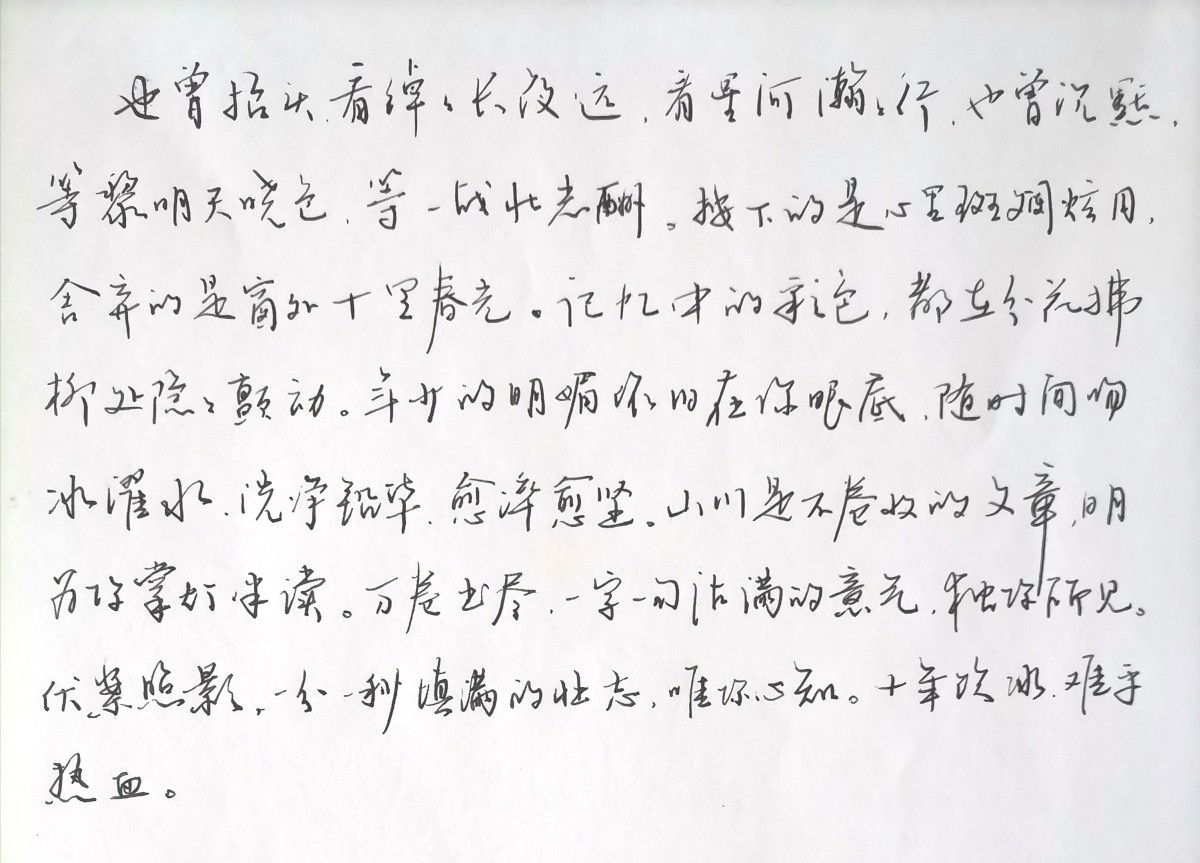 也曾抬头,看绰绰长夜远,看星河瀚瀚行,也曾沉默,
等黎明天晓色,等一战壮志酬。拨下的是心里斑斓炫用,
舍弃的是窗外十里春光。记忆中的彩色,都在分花拂
柳处隐隐颤动。年少的明媚依旧在你眼底,随时间吻
冰濯水,洗净铅华,愈淬愈坚。山川是不卷收的文章,明
为你掌灯伴读。万卷书尽,一字一句沾满的意气,独你所见。
伏案照影,一分一秒填满的壮志,唯你心知。十年饮冰,难平
热血。